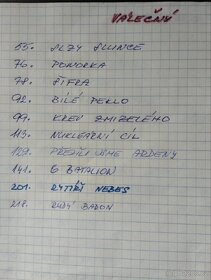 VÁLEČNÝ
55. SLZY SLUNCE
76. PONORKA
78. ŠIFRA
92. BÍLÉ PEKLO
99. KREV ZMIZELÉHO
113. NUKLEÁRNÍ CÍL
129. PŘEŽILI JSME ARDENY
141. 6 BATALION
201. RYTÍŘI NEBES
218. RUDÝ BARON